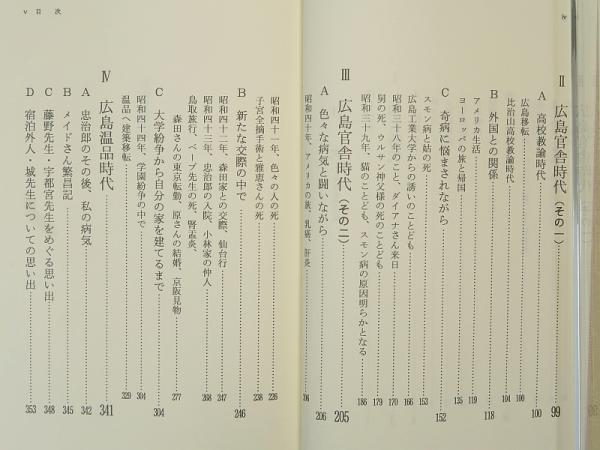 iv
Ⅱ 広島官舎時代（その一）……99
A 高校教諭時代……100
広島移転……100
比治山高校教諭時代……104
B 外国との関係……118
アメリカ生活……119
ヨーロッパの旅と帰国……135
C 奇病に悩まされながら……152
スモン病と姑の死……153
広島工業大学からの誘いのことども……166
昭和三十八年のこと、ダイアナさん来日……170
男の死、ウルサン神父様の死のことども……179
昭和三十九年、猫のことども、スモン病の原因明らかとなる……186
Ⅲ 広島官舎時代（その二）……205
A 色々な病気と闘いながら……206
昭和四十年、アメリカの旅、乳癌、肝炎……206
v 目次
昭和四十一年、色々の人の死……226
子宮全摘手術と雅恵さんの死……238
B 新たな交際の中で……246
昭和四十二年、森田家との交際、仙台行……247
昭和四十三年、忠治郎の入院、小林家の仲人……268
鳥取旅行、ベープ先生の死、腎盂炎、
森田さんの東京転勤、原さんの結婚、京阪見物……277
C 大学紛争から自分の家を建てるまで……304
昭和四十四年、学園紛争の中で……304
温品へ建築移転……329
Ⅳ 広島温品時代……341
A 忠治郎のその後、私の病気……342
B メイドさん繁昌記……345
C 藤野先生・宇都宮先生をめぐる思い出……348
D 宿泊外人・城先生についての思い出……353